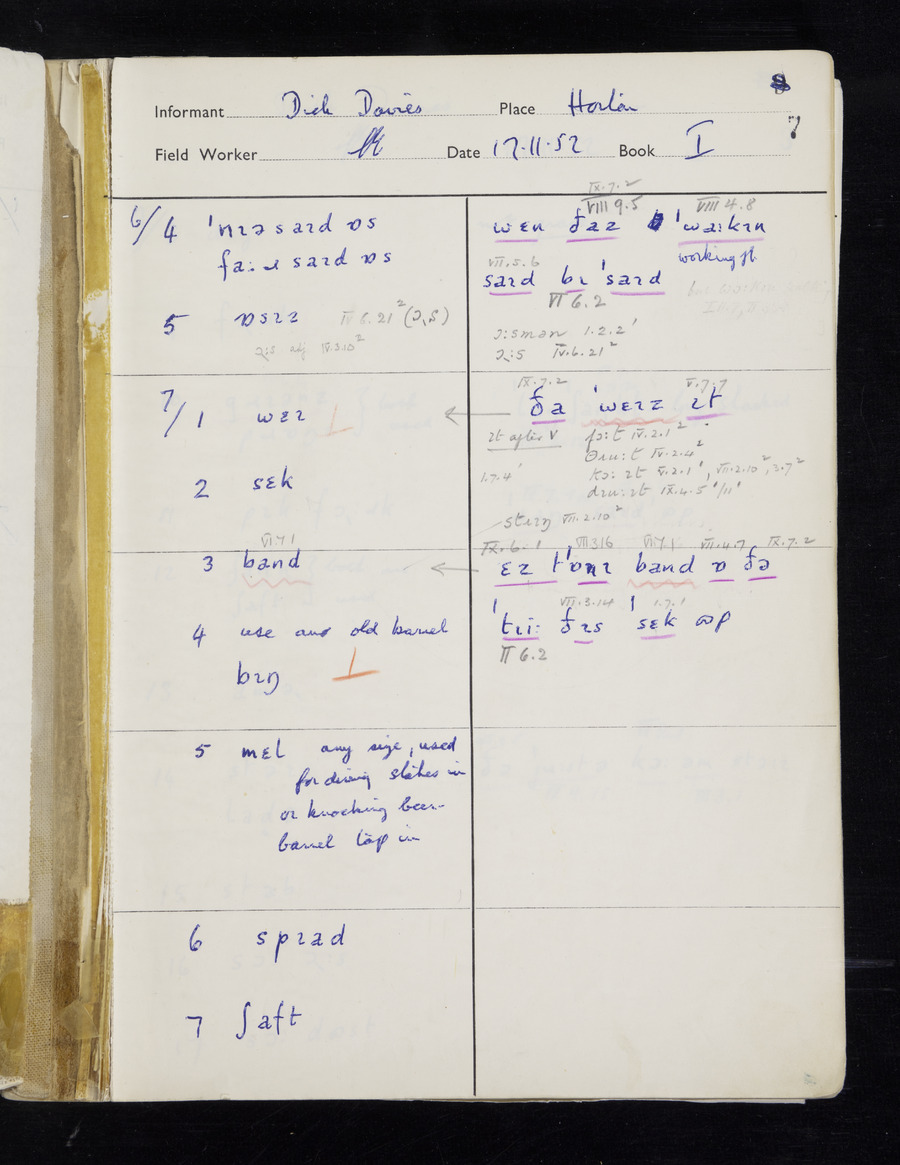 8
Informant Dick Davies Place Horton
7
Field Worker Date 17.11.52 Book I
IX.7.2
VIII 9.5 VIII 4.8
6/4 'nɪəsaɪd ɒs
faːɹ saɪd ɒs
wɛn ðaz 'waːkɪn
working ft
VII.5.6
saɪd bɪ 'saɪd
VI 6.2
5 ɒsɪz IV 6.21² (ɔ,s)
ɔːs adj IV.3.10²
ɔːsman 1.2.2'
ɔːs IV.6.21²
IX.7.2 V.7.7
7/1 wɛɪ
ða 'wɛɪz ɪt
ɪt after V fɔːt IV.2.1²
θɹuːt IV.2.4²
kɔː ɪt V.2.1', VII.2.10², 3.7²
dɹuːɪt IX.4.5'/11'
2 sɛk 1.7.4'
stɪɪŋ VII.2.10²
VI 7 1
IX.6.1 VIII 3 16 VI 7.1 VII.4.7 IX.7.2
3 band
ɛz t'ɒnɪ band ɒ ðə
VII.3.14 1.7.1
'tɹiː ðɪs 'sɛk ɒp
II 6.2
4 use and old barrel
bɪŋ
5 mɛl any size, used
for driving stakes in
or knocking beer-
barrel tap in
6 spɪad
7 ʃaft